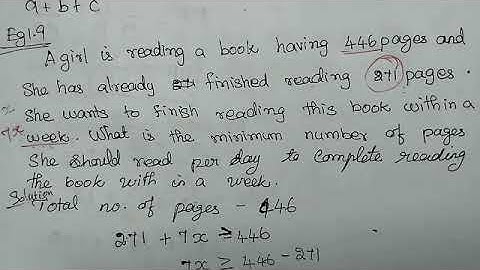 a + b + c
Eg1.9
A girl is reading a book having 446 pages and
She has already finished reading 271 pages.
She wants to finish reading this book within a
7x week. What is the minimum number of pages
She should read per day to complete reading
the book with in a week.
Solution
Total no. of pages - 446
271 + 7x ≥ 446
7x ≥ 446 - 271